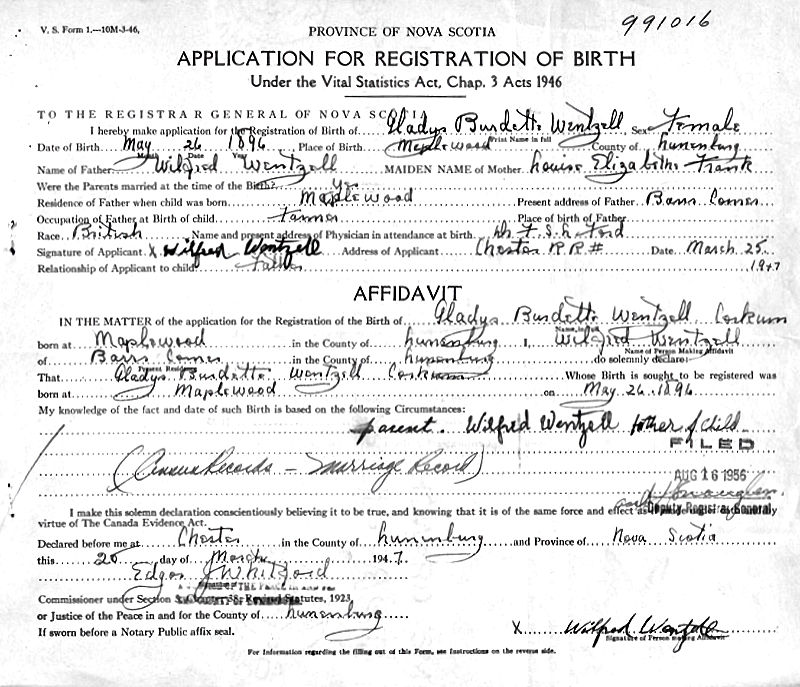 991016
V. S. Form 1.—10M-3-46,
PROVINCE OF NOVA SCOTIA
APPLICATION FOR REGISTRATION OF BIRTH
Under the Vital Statistics Act, Chap. 3 Acts 1946
TO THE REGISTRAR GENERAL OF NOVA SCOTIA
I hereby make application for the Registration of Birth of Gladys Burdette Wentzell Sex Female
Print Name in full
Date of Birth May 26 1896 Place of Birth Maplewood County of Lunenburg
Month Date Year
Name of Father Wilfred Wentzell MAIDEN NAME of Mother Louise Elizabeth Frank
Were the Parents married at the time of the Birth? Yes
Residence of Father when child was born Maplewood Present address of Father Barss Corner
Occupation of Father at Birth of child Farmer Place of birth of Father
Race British Name and present address of Physician in attendance at birth Dr F. S.
Signature of Applicant X Wilfred Wentzell Address of Applicant Chester R R # Date March 25
Relationship of Applicant to child Father 1947
AFFIDAVIT
IN THE MATTER of the application for the Registration of the Birth of Gladys Burdette Wentzell Corkum
Name in full
born at Maplewood in the County of Lunenburg I, Wilfred Wentzell
Name of Person Making Affidavit
of Barss Corner in the County of Lunenburg do solemnly declare:
Present Residence
That Gladys Burdette Wentzell Corkum Whose Birth is sought to be registered was
born at Maplewood on May 26 1896
My knowledge of the fact and date of such Birth is based on the following Circumstances:
parent. Wilfred Wentzell father of child
FILED
(Census Records – Marriage Record)
AUG 16 1956
Deputy Registrar General
I make this solemn declaration conscientiously believing it to be true, and knowing that it is of the same force and effect as
virtue of The Canada Evidence Act.
Declared before me at Chester in the County of Lunenburg and Province of Nova Scotia
this 25 day of March 1947
Edgar J Whitford
Commissioner under Section 3, Chapter 38, Revised Statutes, 1923,
or Justice of the Peace in and for the County of Lunenburg
If sworn before a Notary Public affix seal.
X Wilfred Wentzell
Signature of Person making Affidavit
For Information regarding the filling out of this Form, see Instructions on the reverse side.